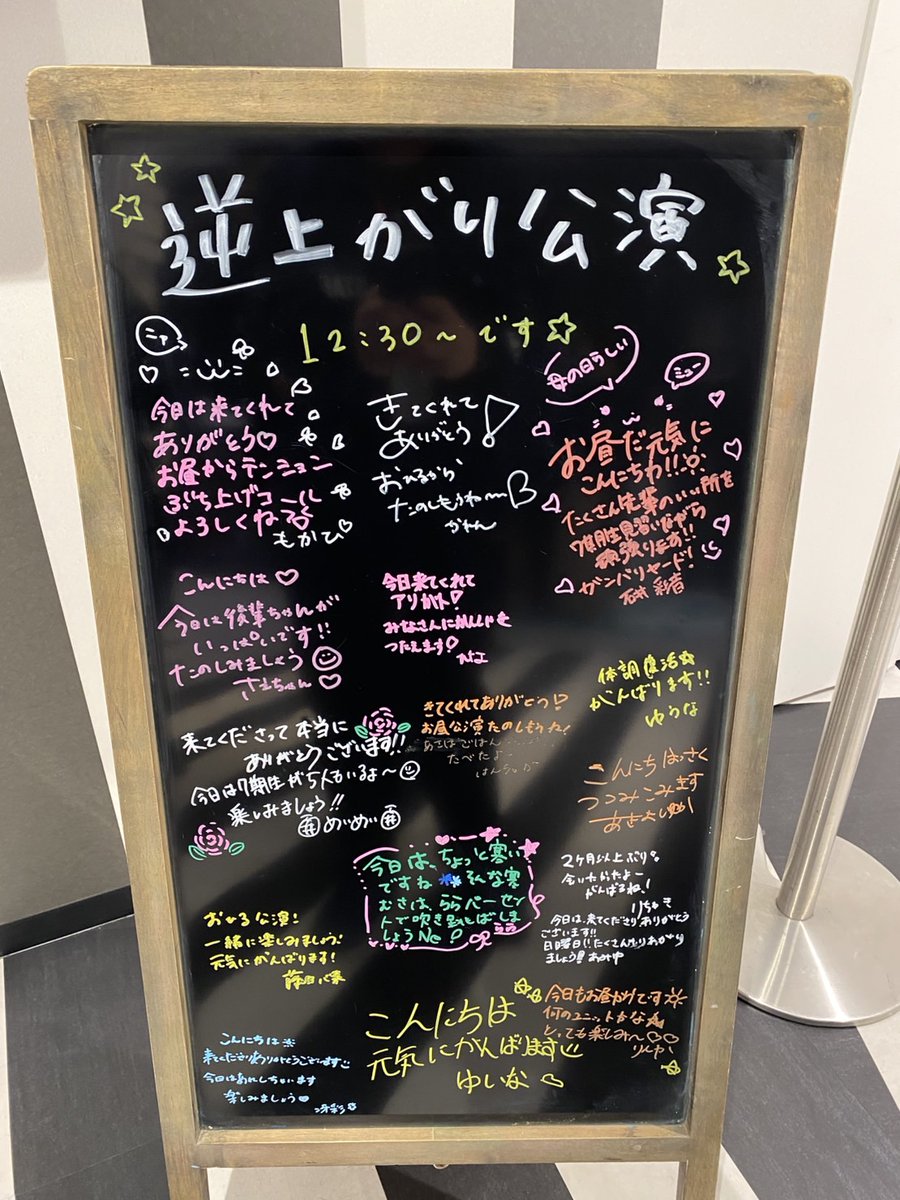 逆上がり公演
12:30~です☆
ニャ
今日は来てくれて
ありがとう♡
お昼からテンション
ぶち上げコール
よろしくね
もかぴ
きてくれて
ありがとう!
おひるから
たのしもうね〜
かれん
母の日らしい
ミュー
お昼だ元気に
こんにちわ!!
たくさん先輩のいい所を
7期生見習いながら
頑張ります!!
ガンバリヤード!
石井 彩音
こんにちは♡
今日は後輩ちゃんが
いっぱいです!!
たのしみましょう
さえちゃん♡
今日来てくれて
アリガト!
みなさんに
つたえます!
体調復活☆
がんばります!!
ゆうな
来てくださって本当に
ありがとうございます!!
今日は7期生が5人もいるよ〜
楽しみましょう!!
めいめい
きてくれてありがとう!
お昼公演たのしもうね!
あさはごはん
たべたよ
こんにちはっさく
つつみこみます
今日は、ちょっと寒い
ですね そんな寒
むさは、ららパーセン
トで吹き飛とばしま
しょうNe!
2ヶ月以上ぶり。
会いたかったよー
がんばるね!
りちゅき
今日は、来てくださりありがとう
ございます!!
日曜日!!たくさんもりあがり
ましょう!!
おひる公演!
一緒に楽しみましょう!
元気にがんばります!
こんにちは
元気にがんばります
ゆいな
今日もお昼からです
何のユニットかな
とっても楽しみ〜♡♡
りんか
こんにちは
来てくださりありがとうございます
今日は
楽しみましょう
冴彩